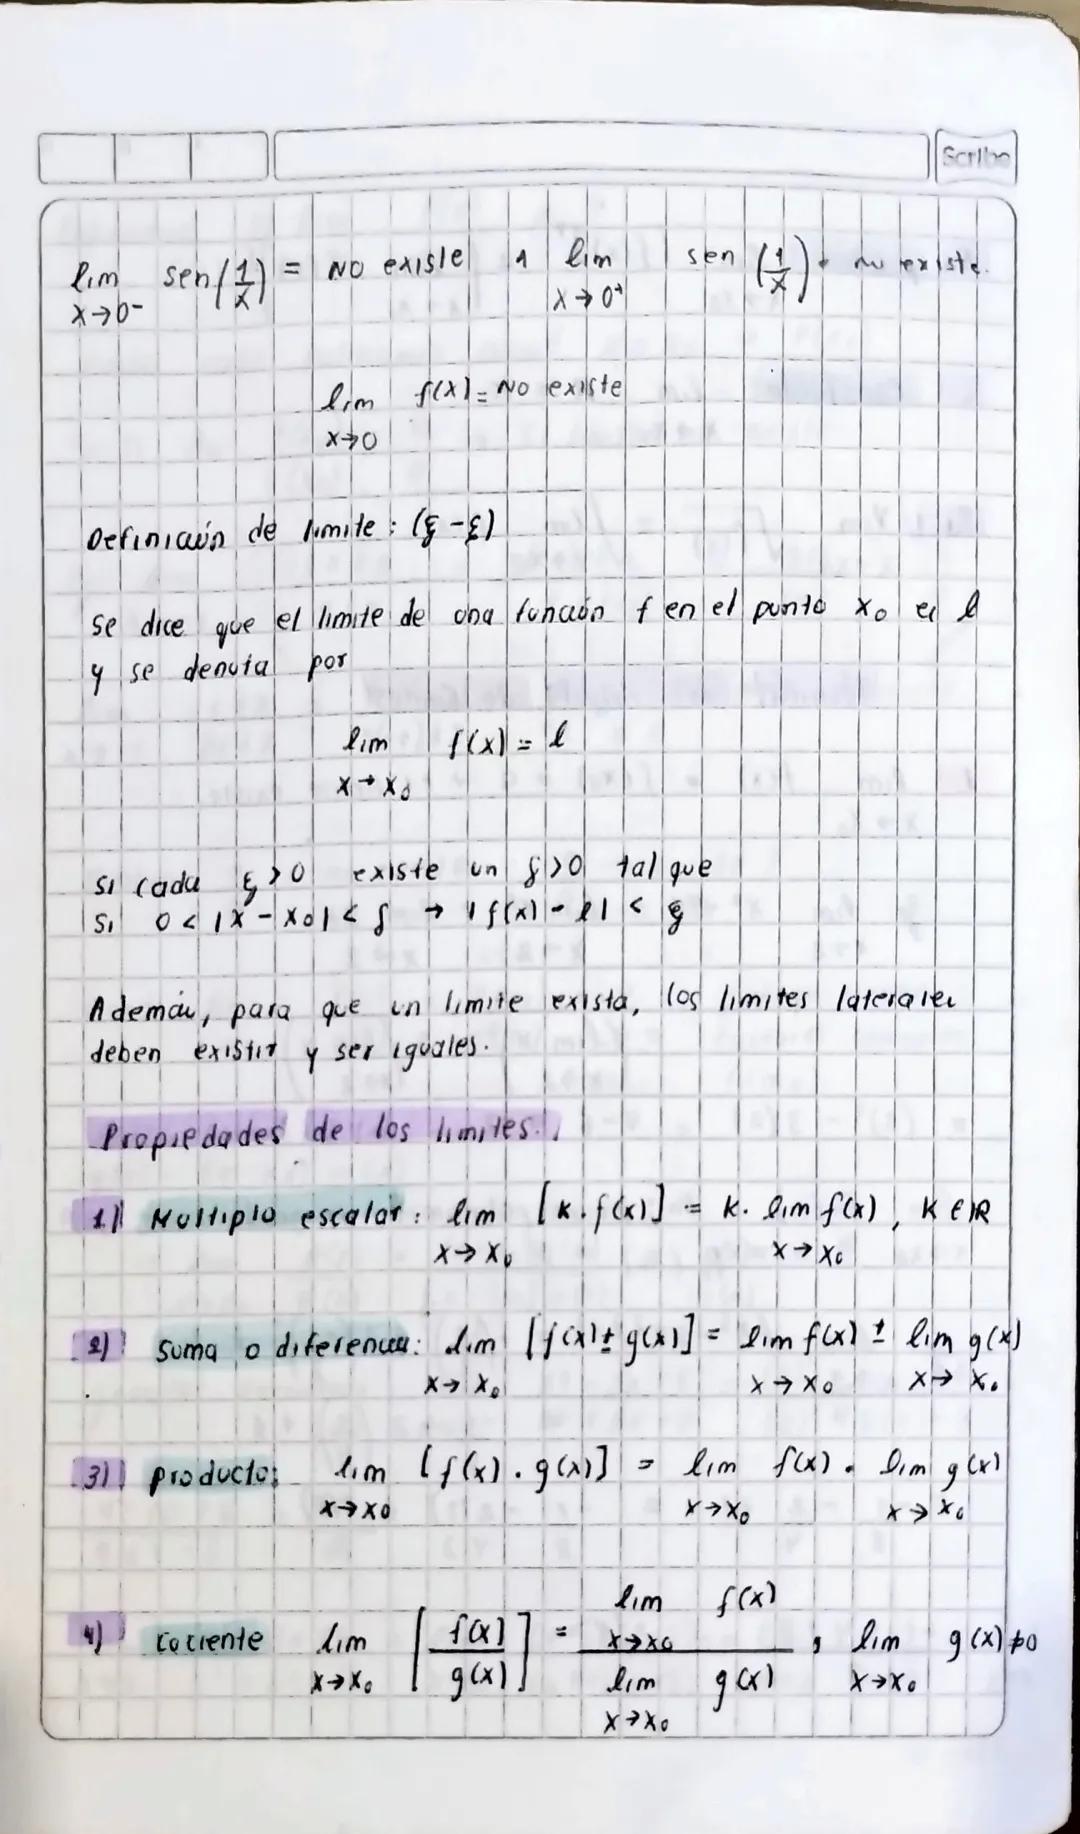 Scribe
lim sen(1/x) = No existe ∧ lim sen (1/x) = no existe.
x→0- x→0+
lim f(x) = No existe
x→0
Definición de limite: (ξ-ξ)
se dice que el limite de una función f en el punto x₀ es l
y se denota por
lim f(x) = l
x→x₀
si cada ξ>0 existe un δ>0 tal que
Si 0<|x-x₀|<δ → |f(x)-l|<ξ
Además, para que un limite exista, los limites laterales
deben existir y ser iguales.
Propiedades de los limites.
1) Multiplo escalar: lim [k.f(x)] = k. lim f(x), k ∈ ℝ
x→x₀ x→x₀
2) Suma o diferencia: lim [f(x)±g(x)] = lim f(x) ± lim g(x)
x→x₀ x→x₀ x→x₀
3) producto: lim [f(x).g(x)] = lim f(x). lim g(x)
x→x₀ x→x₀ x→x₀
lim f(x)
4) Cociente lim [f(x)/g(x)] = x→x₀ , lim g(x)≠0
x→x₀ lim g(x) x→x₀
x→x₀